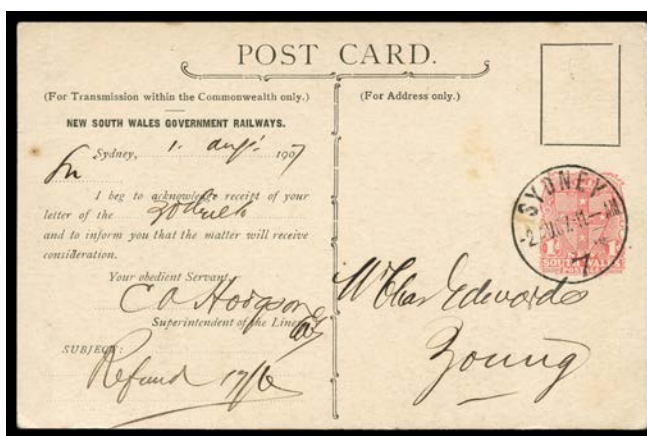 POST CARD.
(For Transmission within the Commonwealth only.)
NEW SOUTH WALES GOVERNMENT RAILWAYS.
Sydney, 1. Aug: 1907
I beg to acknowledge receipt of your
letter of the 30th
and to inform you that the matter will receive
consideration.
Your obedient Servant,
C A Hodgson
Superintendent of the Lines
SUBJECT:
Refund 17/6
(For Address only.)
SYDNEY
1D 1D
SOUTH WALES
POSTAGE
Edwards
Young